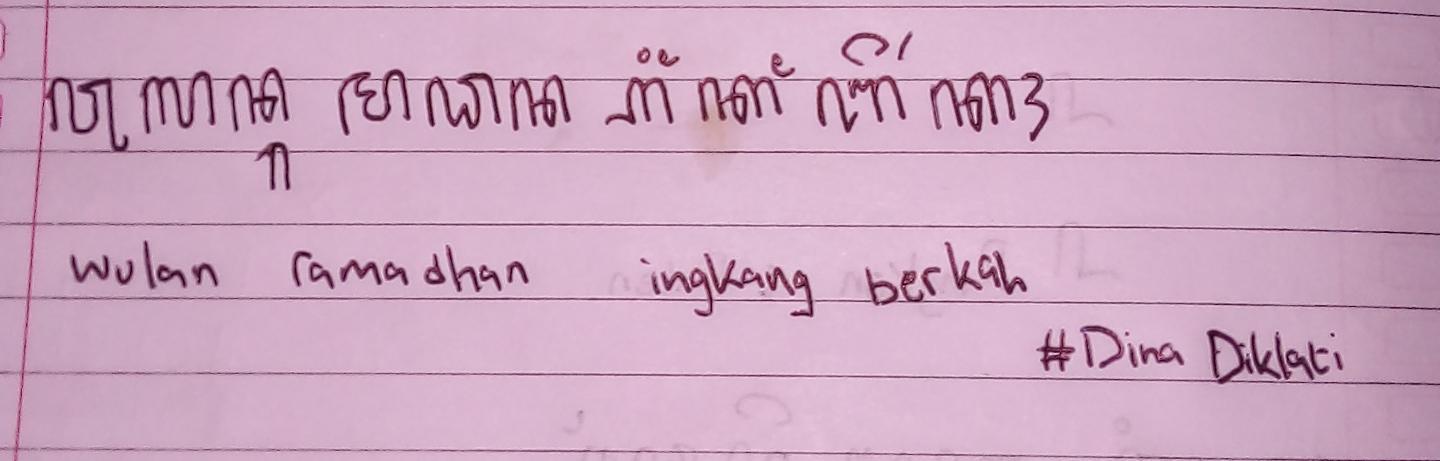 ꦮꦸꦭꦤ꧀ꦫꦩꦝꦤ꧀ꦲꦶꦁꦏꦁꦧꦼꦂꦏꦃ
wulan ramadhan ingkang berkah
#Dina Diklati